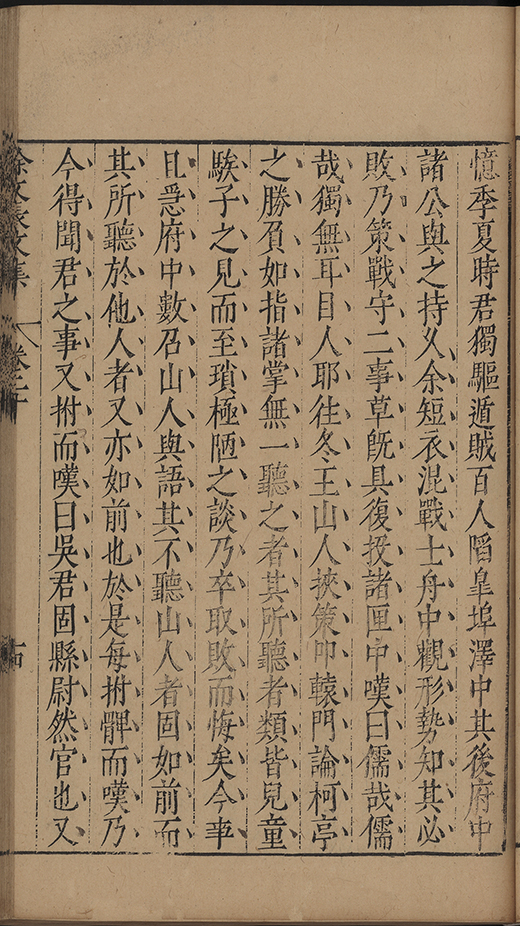 憶季夏時君獨驅遁賊百人陷臯埠澤中其後府中
諸公與之持乆余短衣混戰士舟中觀形勢知其必
敗乃策戰守二事草旣具復投諸匣中嘆曰儒哉儒
哉獨無耳目人耶往冬王山人挾策叩轅門論柯亭
之勝負如指諸掌無一聽之者其所聽者類皆兒童
騃子之見而至瑣極陋之談乃卒取敗而悔矣今事
且急府中數召山人與語其不聽山人者固如前而
其所聽於他人者又亦如前也於是每拊髀而嘆乃
今得聞君之事又拊而嘆曰吳君固縣尉然官也又
徐文長文集